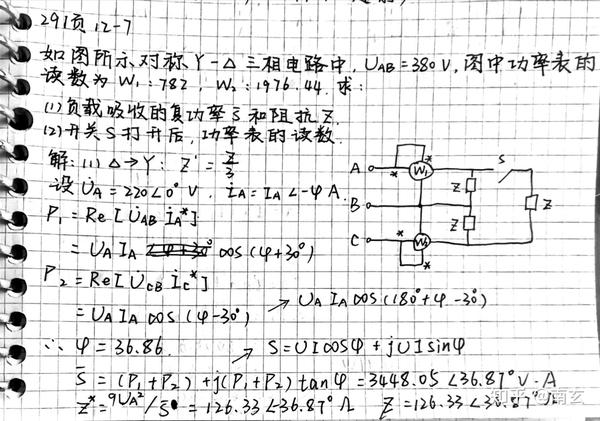 291页 12-7
如图所示对称Y-△三相电路中, UAB=380V, 图中功率表的
读数为W1:782, W2:1976.44. 求:
(1)负载吸收的复功率S̄和阻抗Z.
(2)开关S打开后, 功率表的读数.
解:(1) △→Y: Z' = Z/3
设 U̇A=220∠0° V. İA=IA∠-φ A.
P1=Re[U̇AB İA*]
=UAIA cos(φ+30°)
P2=Re[U̇CB İC*]
=UAIA cos(φ-30°) → UAIA cos(180°+φ-30°)
∴ φ=36.86. → S=UIcosφ+jUIsinφ
S̄ = (P1+P2)+j(P1+P2)tanφ=3448.05∠36.87° V·A
Z*=9UA²/S̄ =126.33∠36.87° Ω Z=126.33∠36.87° Ω
A * W1 * S
Z
B
Z
Z
C * W2 *
知乎 @南玄